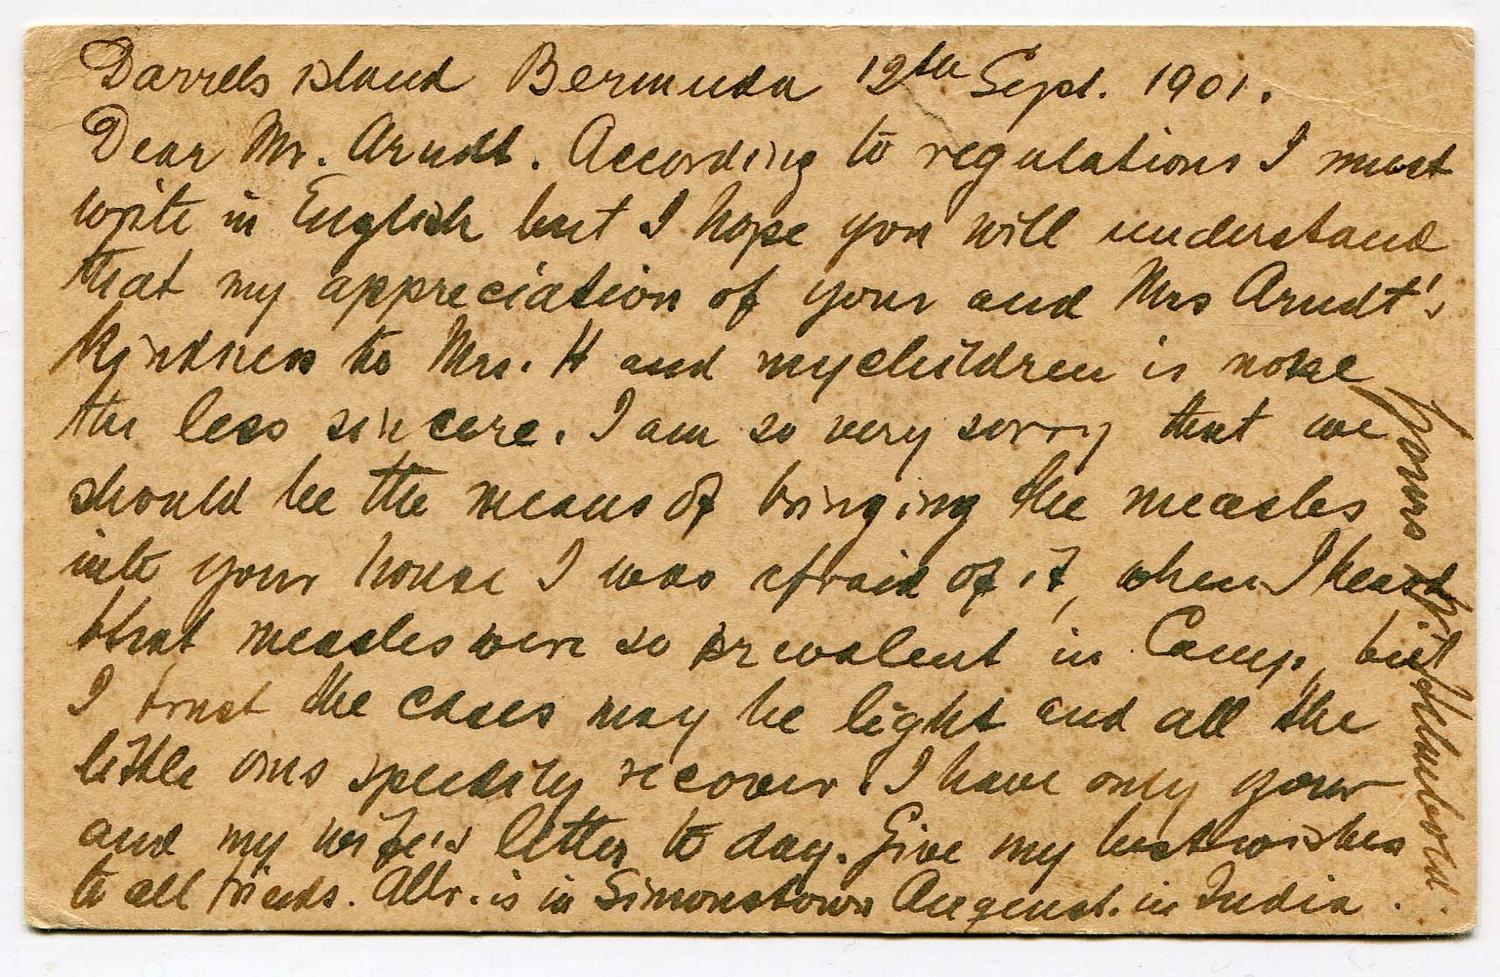 Darrels island Bermuda 12th Sept. 1901.
Dear Mr. Arndt. According to regulations I must
write in English but I hope you will understand
that my appreciation of your and Mrs Arndt's
kindness to Mrs. H and my children is none
the less sincere. I am so very sorry that we
should be the means of bringing the measles
into your house I was afraid of it, when I heard
that measles were so prevalent in Camp, but
I trust the cases may be light and all the
little ones speedily recover. I have only your
and my wife's letter to day. Give my best wishes
to all friends. Albr. is in Simonstown August. in India.
Yours Helmbold